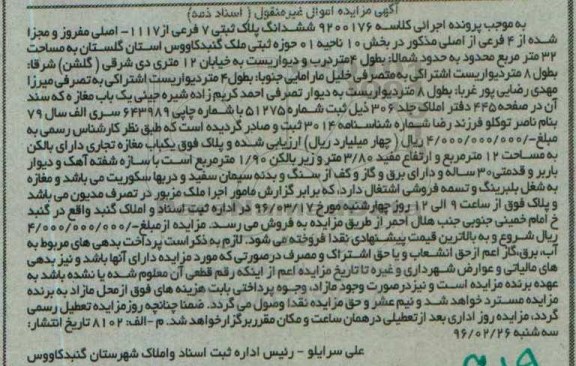 آگهی مزایده اموال غیرمنقول ( اسناد ذمه)
به موجب پرونده اجرائی کلاسه ۹۲۰۰۱۷۶ ششدانگ پلاک ثبتی ۷ فرعی از۱۱۱۷- اصلی مفروز و مجزا
شده از ۴ فرعی از اصلی مذکور در بخش ۱۰ ناحیه ۰۱ حوزه ثبتی ملک گنبدکاووس استان گلستان به مساحت
۳۲ متر مربع محدود به حدود شمالا: بطول ۴متردرب و دیواریست به خیابان ۱۲ متری دی شرقی ( گلشن) شرقا:
بطول ۸ متردیواریست اشتراکی به متصرفی خلیل مارامایی جنوبا: بطول۴ متردیواریست اشتراکی به تصرفی میرزا
مهدی رضایی پور غربا: بطول ۸ متردیواریست به دیوار تصرفی احمد کریم زاده شیره جینی یک باب مغازه که سند
آن در صفحه ۴۴۵ دفتر املاک جلد ۳۰۶ ذیل ثبت شماره ۵۱۲۷۵ با شماره چاپی ۶۴۳۹۸۹ سری الف سال ۷۹
بنام ناصر توکلو فرزند رضا شماره شناسنامه ۳۰۱۴ ثبت و صادر گردیده است که طبق نظر کارشناس رسمی به
مبلغ-/۴/۰۰۰/۰۰۰/۰۰۰ ریال ( چهار میلیارد ریال) ارزیابی شده و پلاک فوق یکباب مغازه تجاری دارای بالکن
به مساحت ۱۲ مترمربع و ارتفاع مفید ۳/۸۰ متر و زیر بالکن ۱/۹۰ مترمربع است با سازه شفته آهک و دیوار
باربر و قدمتی۳۰ ساله و دارای برق و گاز و کف از سنگ و بدنه سیمان سفید و دربها سکوریت می باشد و مغازه
به شغل بلبرینگ و تسمه فروشی اشتغال دارد، که برابر گزارش مامور اجرا ملک مزبور در تصرف مدیون می باشد
و پلاک فوق از ساعت ۹ الی ۱۲ روز چهارشنبه مورخ ۹۶/۰۳/۱۷ در اداره ثبت اسناد و املاک گنبد واقع در گنبد
خ امام خمینی جنوبی جنب هلال احمر از طریق مزایده به فروش می رسد. مزایده ازمبلغ-/۴/۰۰۰/۰۰۰/۰۰۰
ریال شروع و به بالاترین قیمت پیشنهادی نقدا فروخته می شود. لازم به ذکر است پرداخت بدهی های مربوط به
آب، برق،گاز اعم ازحق انشعاب و یا حق اشتراک و مصرف درصورتی که مورد مزایده دارای آنها باشد و نیز بدهی
های مالیاتی و عوارض شهرداری و غیره تا تاریخ مزایده اعم از اینکه رقم قطعی آن معلوم شده یا نشده باشد به
عهده برنده مزایده است و نیز درصورت وجود مازاد، وجوه پرداختی بابت هزینه های فوق ازمحل مازاد به برنده
مزایده مسترد خواهد شد و نیم عشر و حق مزایده نقدا وصول می گردد. ضمنا چنانچه روزمزایده تعطیل رسمی
گردد، مزایده روز اداری بعد از تعطیلی در همان ساعت و مکان مقرر برگزار خواهد شد. م -الف: ۸۱۰۲ تاریخ انتشار:
سه شنبه ۹۶/۰۲/۲۶
علی سرایلو - رئیس اداره ثبت اسناد واملاک شهرستان گنبدکاووس